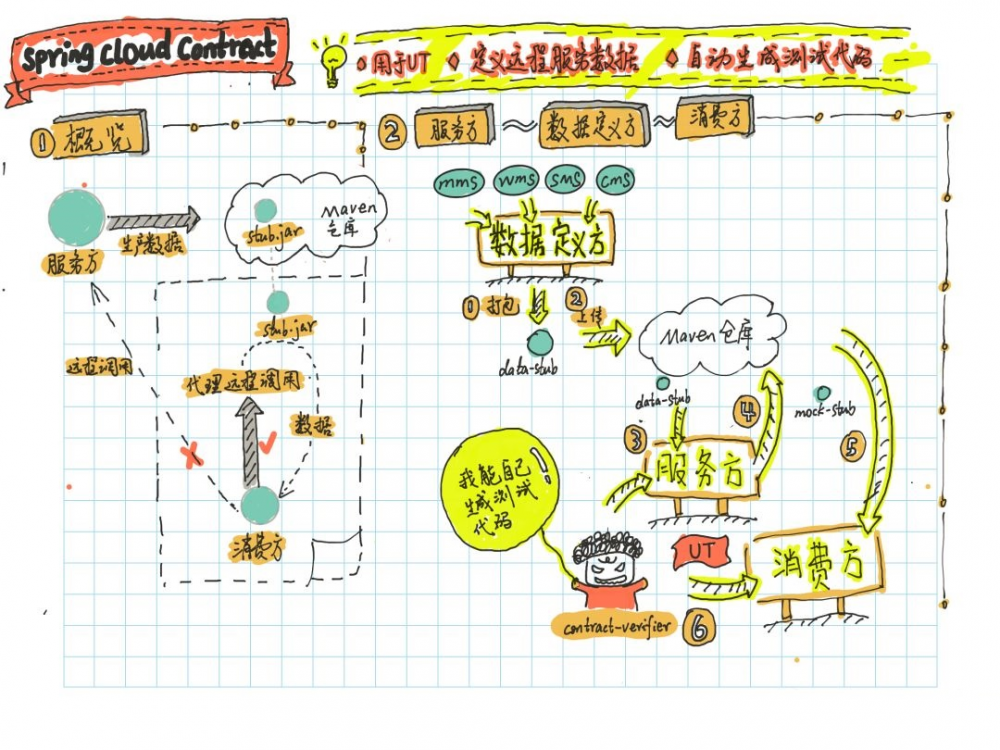 Spring Cloud Contract
用于UT
定义远程服务数据
自动生成测试代码
① 概览
服务方
生产数据
Maven
仓库
stub.jar
stub.jar
远程调用
代理远程调用
数据
消费方
② 服务方 ≈ 数据定义方 ≈ 消费方
mms wms sms cms
数据定义方
① 打包
② 上传
data-stub
Maven仓库
data-stub
mock-stub
③
④
⑤
服务方
我能自己
生成测试
代码!
UT
消费方
contract-verifier
⑥